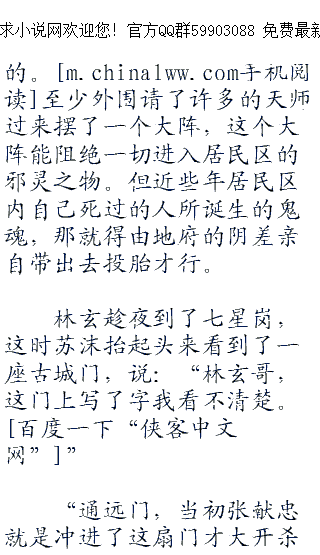 求小说网欢迎您! 官方QQ群59903088 免费最新
的。[m.china1ww.com手机阅
读]至少外围请了许多的天师
过来摆了一个大阵，这个大
阵能阻绝一切进入居民区的
邪灵之物。但近些年居民区
内自己死过的人所诞生的鬼
魂，那就得由地府的阴差亲
自带出去投胎才行。
林玄趁夜到了七星岗，
这时苏沫抬起头来看到了一
座古城门，说：“林玄哥，
这门上写了字我看不清楚。
[百度一下“侠客中文
网”]”
“通远门，当初张献忠
就是冲进了这扇门才大开杀